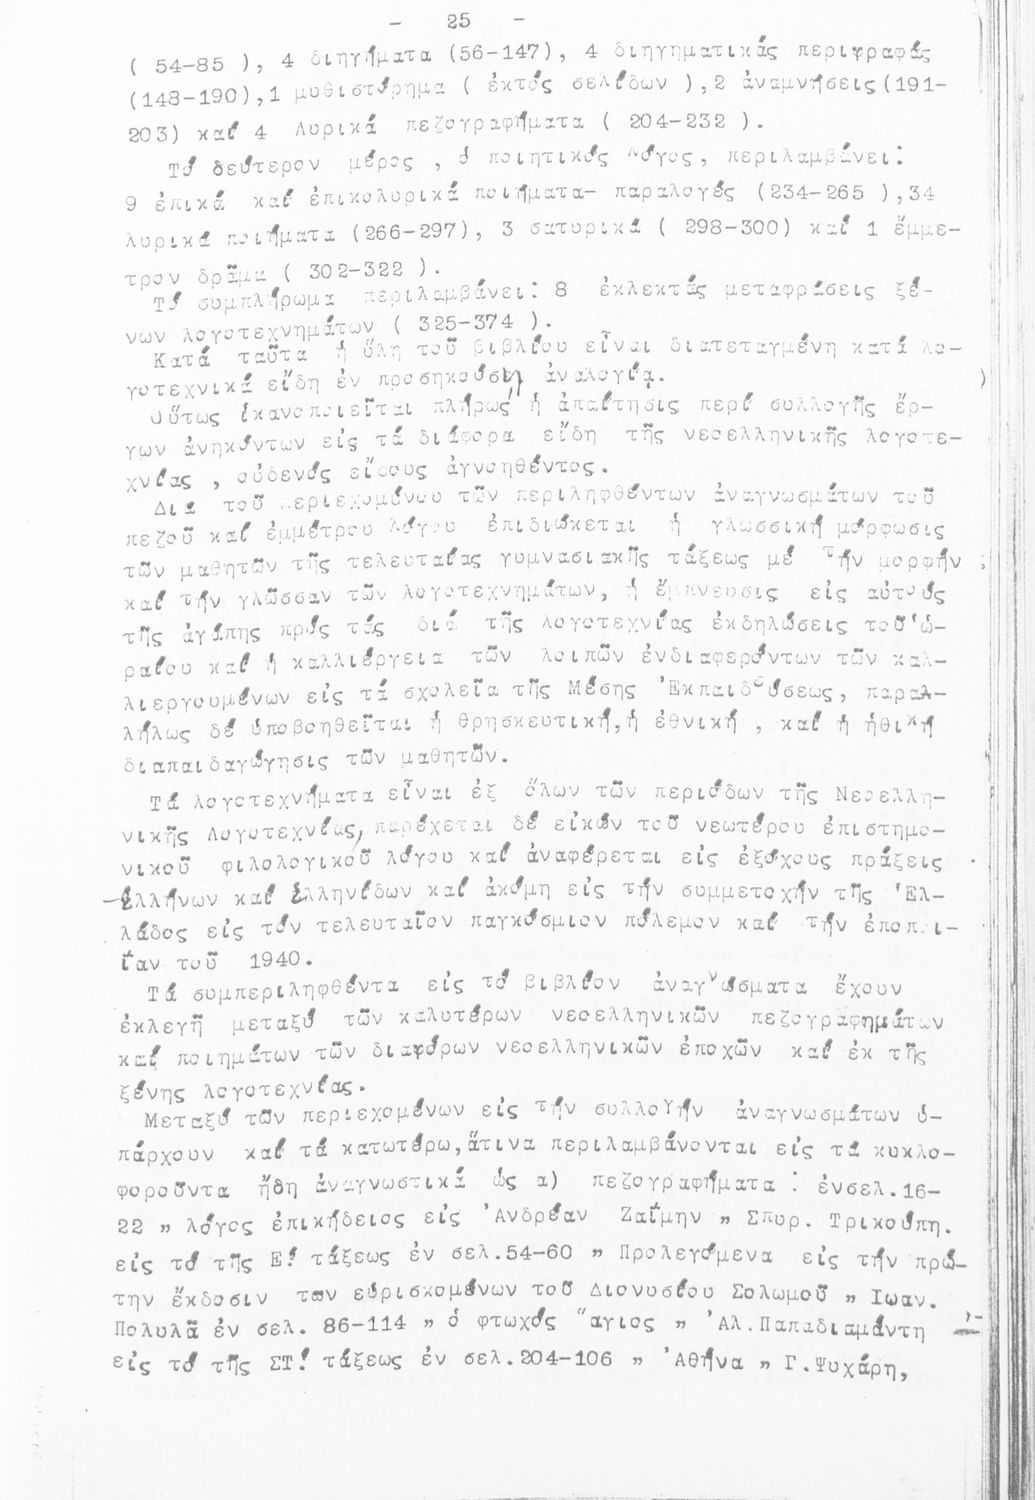 - 25 -
( 54-85 ), 4 διηγήματα (56-147), 4 διηγηματικάς περιγραφάς
(148-190),1 μυθιστόρημα ( ἐκτός σελίδων ),2 ἀναμνήσεις(191-
203) καί 4 Λυρικά πεζογραφήματα ( 204-232 ).
Τό δεύτερον μέρος , ὁ ποιητικός Λόγος, περιλαμβάνει:
9 ἐπικά καί ἐπικολυρικά ποιήματα- παραλογές (234-265 ),34
λυρικά ποιήματα (266-297), 3 σατυρικά ( 298-300) καί 1 ἔμμε-
τρον δρᾶμα ( 302-322 ).
Τό συμπλήρωμα περιλαμβάνει: 8 ἐκλεκτάς μεταφράσεις ξέ-
νων λογοτεχνημάτων ( 325-374 ).
Κατά ταῦτα ἡ ὕλη τοῦ βιβλίου εἶναι διατεταγμένη κατά λο-
γοτεχνικά εἴδη ἐν προσηκούσῃ ἀναλογίᾳ.
Οὕτως ἱκανοποιεῖται πλήρως ἡ ἀπαίτησις περί συλλογῆς ἔρ-
γων ἀνηκόντων εἰς τά διάφορα εἴδη τῆς νεοελληνικῆς λογοτε-
χνίας , οὐδενός εἴδους ἀγνοηθέντος.
Διά τοῦ περιεχομένου τῶν περιληφθέντων ἀναγνωσμάτων τοῦ
πεζοῦ καί ἐμμέτρου λόγου ἐπιδιώκεται ἡ γλωσσική μόρφωσις
τῶν μαθητῶν τῆς τελευταίας γυμνασιακῆς τάξεως μέ τήν μορφήν
καί τήν γλῶσσαν τῶν λογοτεχνημάτων, ἡ ἔμπνευσις εἰς αὐτούς
τῆς ἀγάπης πρός τάς διά τῆς λογοτεχνίας ἐκδηλώσεις τοῦ ὡ-
ραίου καί ἡ καλλιέργεια τῶν λοιπῶν ἐνδιαφερόντων τῶν καλ-
λιεργουμένων εἰς τά σχολεῖα τῆς Μέσης Ἐκπαιδεύσεως, παραλ-
λήλως δέ ὑποβοηθεῖται ἡ θρησκευτική,ἡ ἐθνική , καί ἡ ἠθική
διαπαιδαγώγησις τῶν μαθητῶν.
Τά λογοτεχνήματα εἶναι ἐξ ὅλων τῶν περιόδων τῆς Νεοελλη-
νικῆς Λογοτεχνίας, παρέχεται δέ εἰκών τοῦ νεωτέρου ἐπιστημο-
νικοῦ φιλολογικοῦ λόγου καί ἀναφέρεται εἰς ἐξόχους πράξεις
Ἑλλήνων καί Ἑλληνίδων καί ἀκόμη εἰς τήν συμμετοχήν τῆς Ἑλ-
λάδος εἰς τόν τελευταῖον παγκόσμιον πόλεμον καί τήν ἐποποι-
ΐαν τοῦ 1940.
Τά συμπεριληφθέντα εἰς τό βιβλίον ἀναγνώσματα ἔχουν
ἐκλεγῆ μεταξύ τῶν καλυτέρων νεοελληνικῶν πεζογραφημάτων
καί ποιημάτων τῶν διαφόρων νεοελληνικῶν ἐποχῶν καί ἐκ τῆς
ξένης λογοτεχνίας.
Μεταξύ τῶν περιεχομένων εἰς τήν συλλογήν ἀναγνωσμάτων ὑ-
πάρχουν καί τά κατωτέρω,ἅτινα περιλαμβάνονται εἰς τά κυκλο-
φοροῦντα ἤδη ἀναγνωστικά ὡς α) πεζογραφήματα : ἐνσελ.16-
22 " λόγος ἐπικήδειος εἰς Ἀνδρέαν Ζαΐμην " Σπυρ. Τρικούπη.
εἰς τό τῆς Ε! τάξεως ἐν σελ.54-60 " Προλεγόμενα εἰς τήν πρώ-
την ἔκδοσιν των εὑρισκομένων τοῦ Διονυσίου Σολωμοῦ " Ιωαν.
Πολυλᾶ ἐν σελ. 86-114 " ὁ φτωχός ἅγιος " Ἀλ.Παπαδιαμάντη
εἰς τό τῆς ΣΤ! τάξεως ἐν σελ.204-106 " Ἀθήνα " Γ.Ψυχάρη,